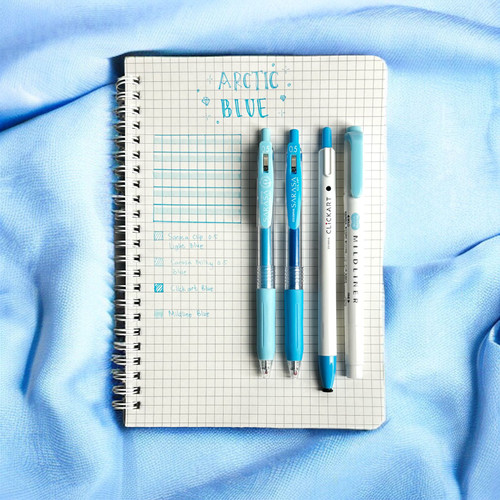 ARCTIC
BLUE
Sarasa Clip 0.5
Light Blue
Sarasa Milky 0.5
Blue
Clickart Blue
Mildliner Blue
SARASA
0.5
SARASA
CLiCKART
MILDLINER